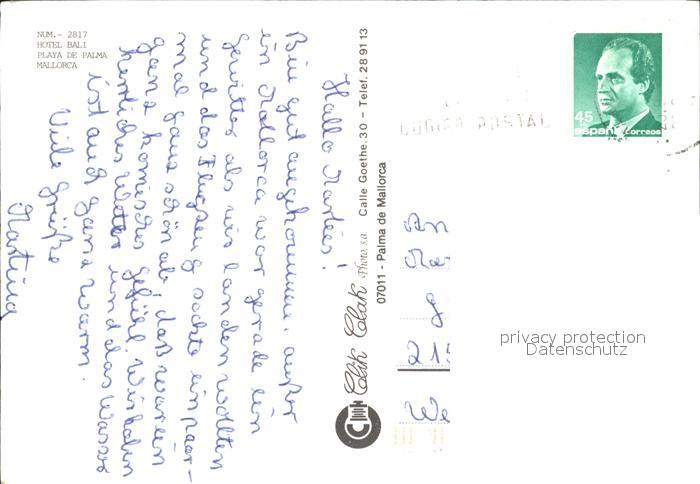 NUM.- 2817
HOTEL BALI
PLAYA DE PALMA
MALLORCA
Hallo Marlies!
Bin gut angekommen, außer
in Mallorca war gerade ein
Gewitter als wir landen wollten
und das Flugzeug sackte ein paar-
mal ganz schön ab, daß war ein
ganz komisches Gefühl. Wir haben
herrliches Wetter und das Wasser
ist auch ganz warm.
Viele Grüße
Martina
Clik Clak Photo, s.a. Calle Goethe, 30 – Telef. 28 91 13
07011 - Palma de Mallorca
CODIGO POSTAL
45
españa correos
An
215
We
privacy protection
Datenschutz